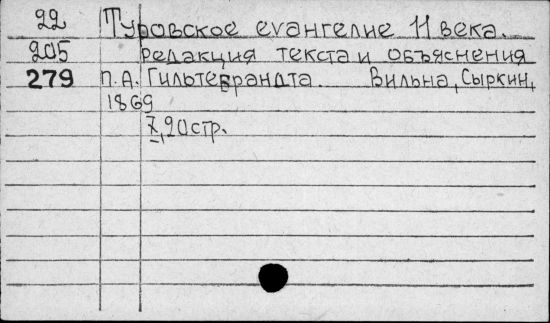 22 Туровское евангелие 11 века.
205 редакция текста и объяснения
279 П.А. Гильтебрандта. Вильна, Сыркин,
1869
X, 20стр.